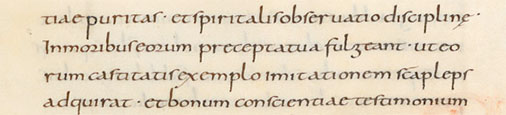 tiae puritas · et spiritalis observatio discipline ·
In moribus eorum precepta tua fulgeant · ut eo
rum castitatis exemplo imitationem sca pleps
adquirat · et bonum conscientiae testimonium